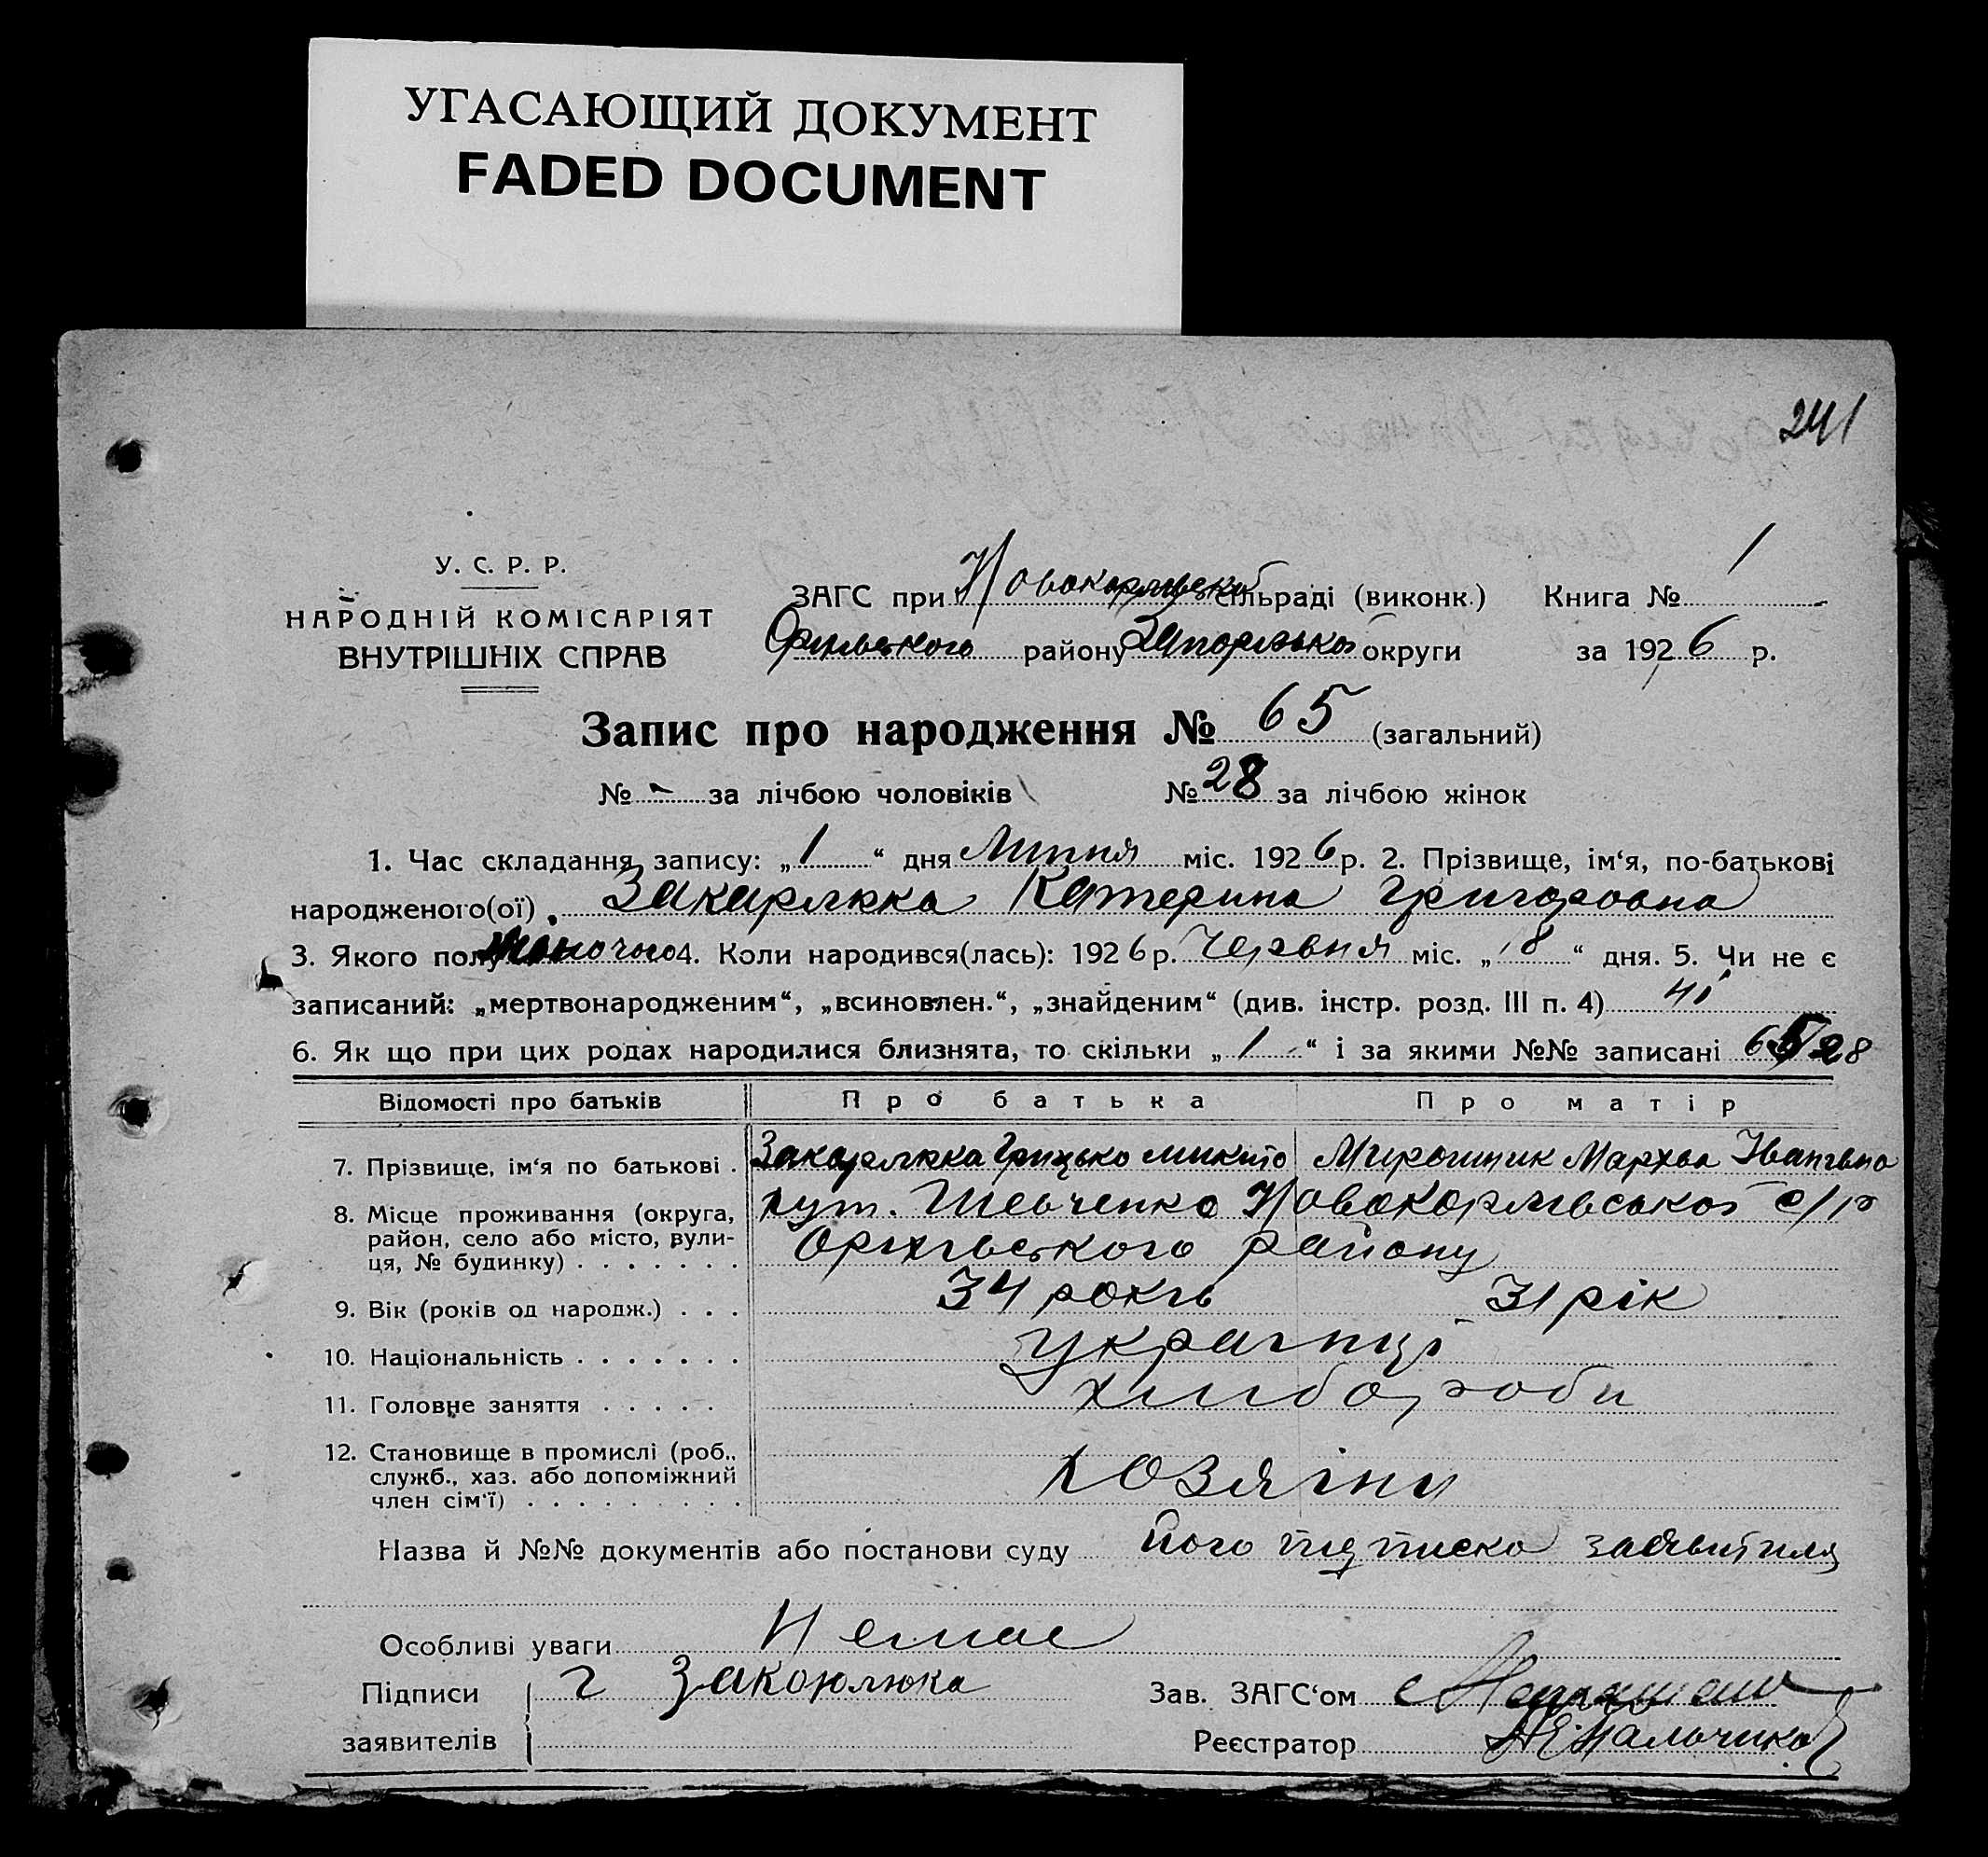 УГАСАЮЩИЙ ДОКУМЕНТ
FADED DOCUMENT
241
У. С. Р. Р.
НАРОДНІЙ КОМІСАРІЯТ
ВНУТРІШНІХ СПРАВ
ЗАГС при сільраді (виконк.) Книга № 1
району округи за 1926 р.
Запис про народження № 65 (загальний)
№ - за лічбою чоловіків № 28 за лічбою жінок
1. Час складання запису: „1“ дня Липня міс. 1926 р. 2. Прізвище, ім‘я, по-батькові
народженого(ої) Закарлюка Катерина Григоровна
3. Якого полу жіночого 4. Коли народився(лась): 1926 р. Червня міс. „18“ дня. 5. Чи не є
записаний: „мертвонародженим“, „всиновлен.“, „знайденим“ (див. інстр. розд. III п. 4) ні
6. Як що при цих родах народилися близнята, то скільки „1“ і за якими №№ записані 65/28
Відомості про батьків Про батька Про матір
7. Прізвище, ім‘я по батькові . Закарлюка Грицько Микито Мирошник Мархва Іванівна
8. Місце проживання (округа, хут. Шевченко Новокарлівської с/р
район, село або місто, вули- Оріхівського району
ця, № будинку) . . . . . . .
9. Вік (років од народж.) . . . 34 років 31 рік
10. Національність . . . . . . . українці
11. Головне заняття . . . . . хлібороби
12. Становище в промислі (роб.,
служб., хаз. або допоміжний хозяїни
член сім‘ї) . . . . . . . . .
Назва й №№ документів або постанови суду його підписка заявителя
Особливі уваги Немає
Підписи Г Закорлюка Зав. ЗАГС‘ом
заявителів Реєстратор